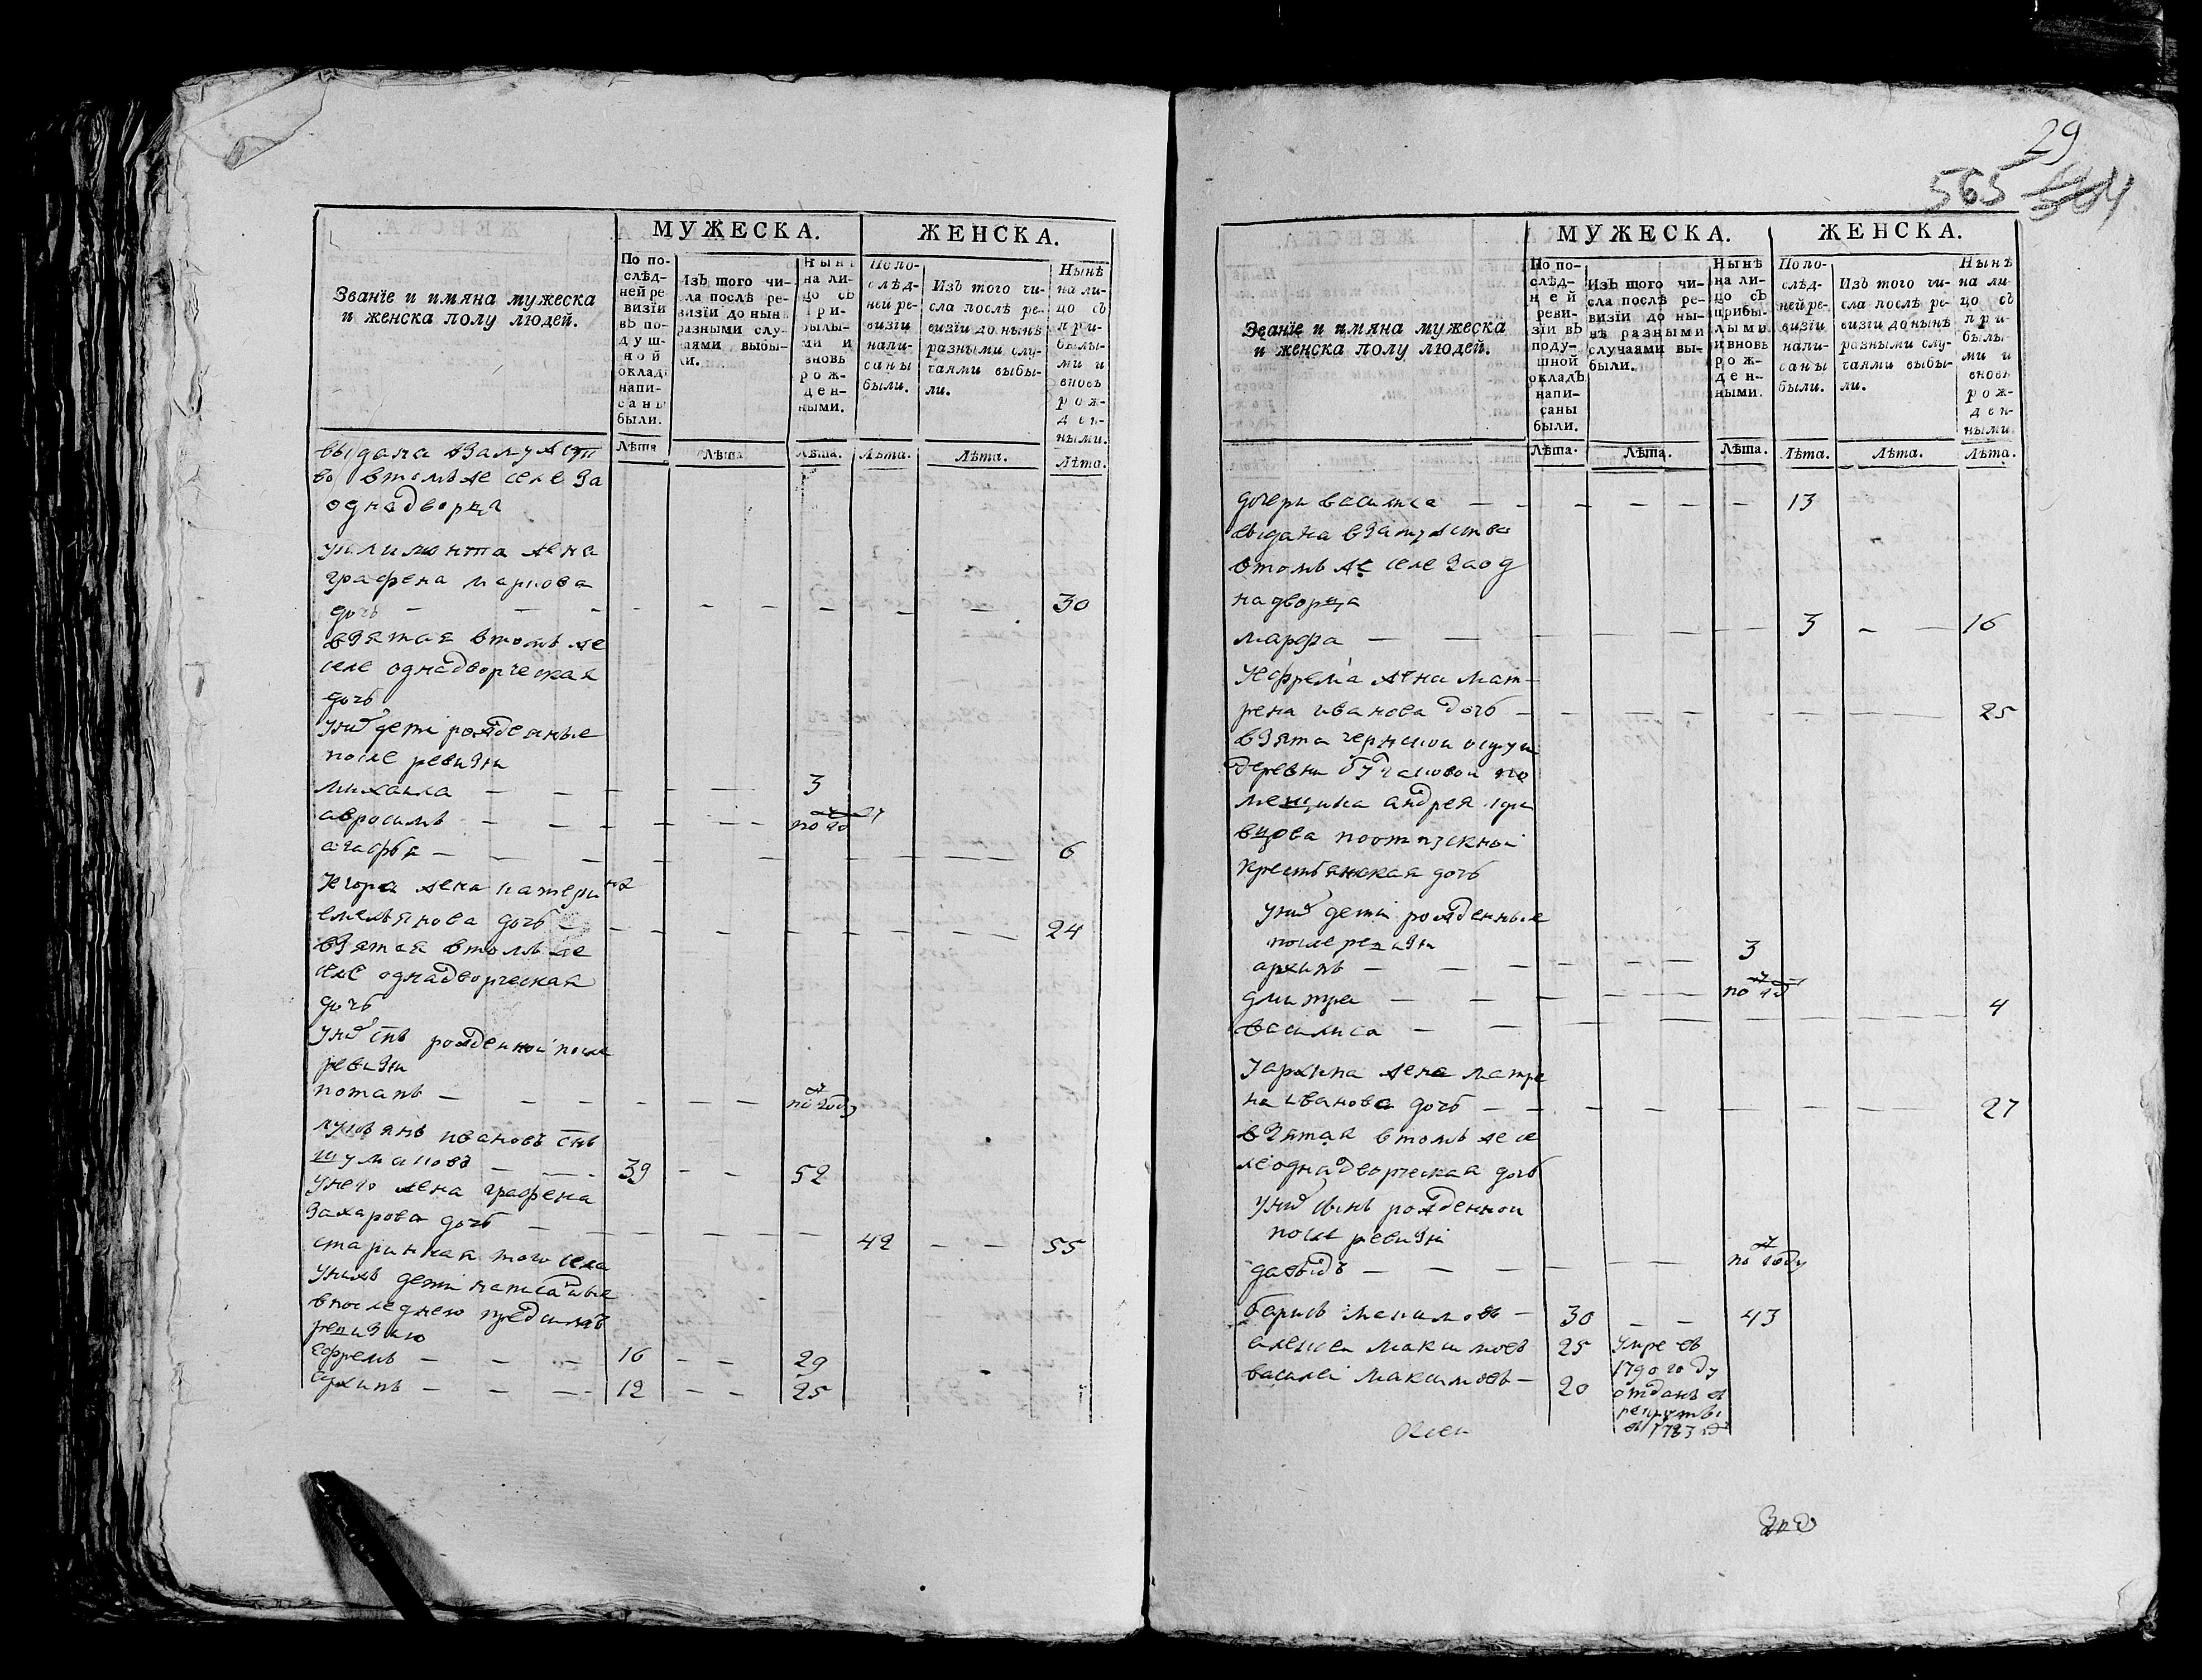 МУЖЕСКА.
ЖЕНСКА.
Званїе и имяна мужеска
и женска полу людей.
По по-
слѣд-
ней ре
визїи
вЪ по-
душ-
ной
оклад
напи-
саны
были.
ИзЪ того чи-
ла послѣ ре-
визїи до нын
разными слу-
аями выбы-
и.
Нынѣ
на ли-
цо сЪ
при-
былы-
ми и
вновь
рож-
ден-
ными.
По по-
слѣд-
ней ре-
визїи
напи-
саны
были.
ИзЪ того чи-
сла послѣ ре-
визїи до нынѣ
разными слу-
чаями выбы-
ли.
Нынѣ
на ли-
цо сЪ
при-
былы-
ми и
вновь
рож-
ден-
ными.
Лѣта
Лѣта
Лѣта.
Лѣта.
Лѣта.
Лѣта.
выдана взамужст
во втомъ же селе за
однадворца
уфилимонта жена
графена маркова
дочь — 30
взятая втомъ же
селе однадворческая
дочь
унихъ дети рожденные
после ревизии
михаила — 3
авросимъ — по году
агафья — 6
уегора жена катерина
емельянова дочь — 24
взятая втомъ же
селе однадворческая
дочь
унихъ снъ рожденной после
ревизии
потапъ — по году
лукьянъ ивановъ снъ
шумаковъ — 39 — 52
унего жена графена
захарова дочь — 42 — 55
старинная того села
унихъ дети написанные
впоследнею пред симъ
ревизию
ефремъ — 16 — 29
архипъ — 12 — 25
29
565 564
МУЖЕСКА.
ЖЕНСКА.
Званїе и имяна мужеска
и женска полу людей.
По по-
слѣд-
ней
реви-
зїи вЪ
поду-
шной
окладЪ
напи-
саны
были.
ИзЪ того чи-
сла послѣ ре-
визїи до ны-
нѣ разными
случаями вы-
были.
Нынѣ
на ли-
цо сЪ
прибы-
лыми
и вновь
рож-
ден-
ными.
По по-
слѣд-
ней ре-
визїи
напи-
саны
были.
ИзЪ того чи-
сла послѣ ре-
визїи до нынѣ
разными слу-
чаями выбы-
ли.
Нынѣ
на ли-
цо сЪ
при-
былы-
ми и
вновь
рож-
ден-
ными.
Лѣта.
Лѣта.
Лѣта.
Лѣта.
Лѣта.
Лѣта.
дочери василиса — 13
выдана взамужство
втомъ же селе заод
надворца
марфа — 3 — 16
уефрема жена мат-
рена иванова дочь — 25
взята
деревни по
мещика андрея
вцова поотпускной
крестьянская дочь
унихъ дети рожденные
после ревизии
архипъ — 3
дмитре — по году
василиса — 4
уархипа жена матре
на иванова дочь — 27
взятая втомъ же се
ле однадворческая дочь
унихъ сынъ рожденной
после ревизи
давыдъ — по году
барисъ макимовъ — 30 — 43
алексеи макимовъ 25 умре въ
1790 году
василеи максимовъ — 20 отданъ въ
рекруты
въ 1783 году